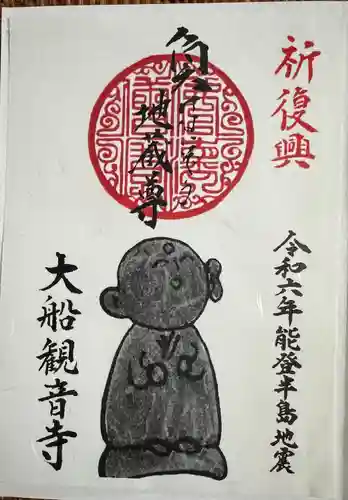 祈復興
令和六年能登半島地震
地蔵尊
大船観音寺